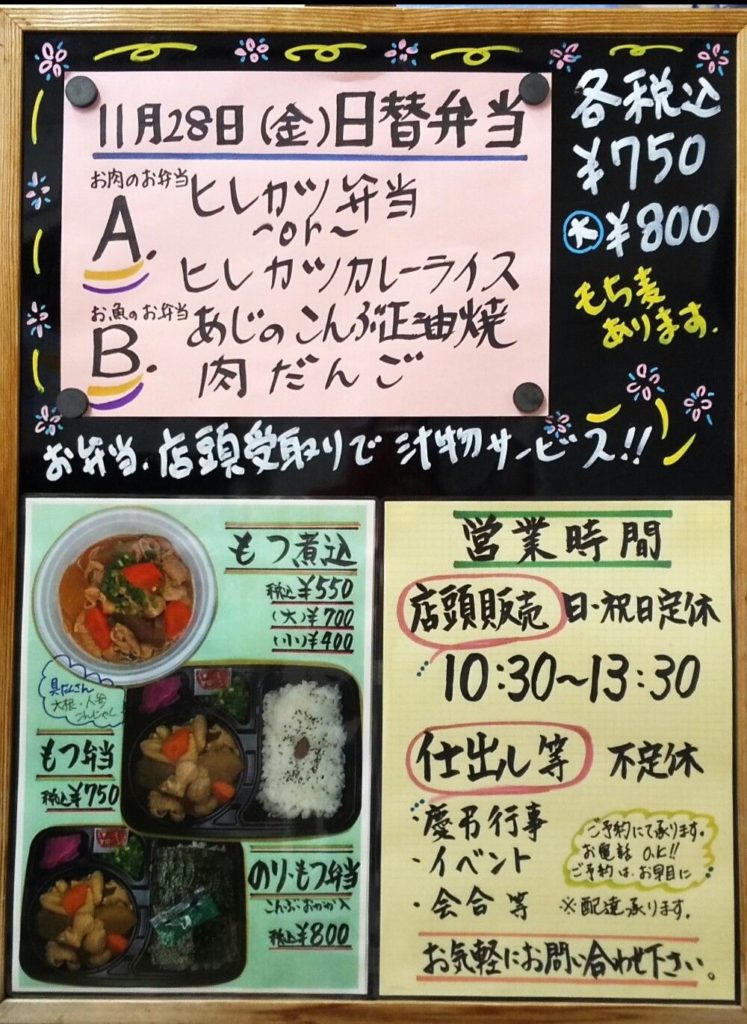 11月28日(金)日替弁当
お肉のお弁当
A.
ヒレカツ弁当
~or~
ヒレカツカレーライス
お魚のお弁当
B.
あじのこんぶ正油焼
肉だんご
各税込
¥750
大¥800
もち麦
あります.
お弁当、店頭受取りで 汁物サービス!!
もつ煮込
税込¥550
(大)¥700
(小)¥400
具だくさん
大根・人参
こんにゃく
もつ弁当
税込¥750
のり・もつ弁当
こんぶ・おかか入
税込¥800
営業時間
店頭販売 日・祝日定休
10:30~13:30
仕出し等 不定休
・慶弔行事
・イベント
・会合等
ご予約にて承ります。
お電話 O.K!!
ご予約は、お早目に
※配達承ります。
お気軽にお問い合わせ下さい。